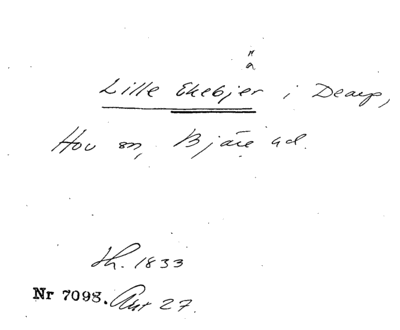 ä
Lille Ekebjer i Dearp,
Hov sn, Bjäre hd.
Sh. 1833
Nr 7098. Ant 27.